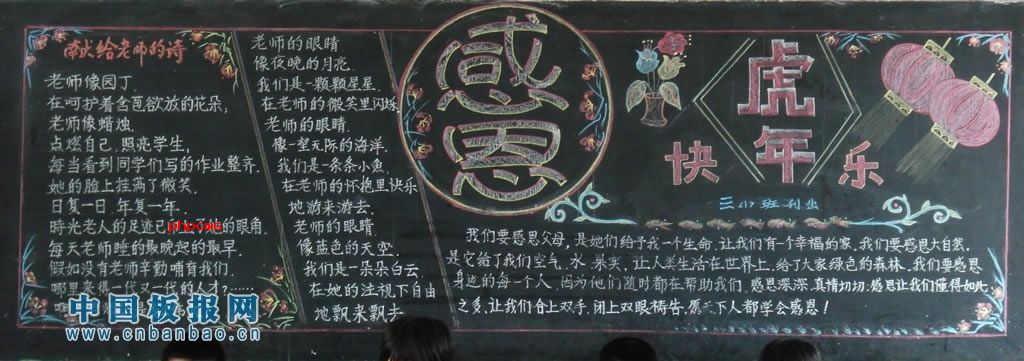 献给老师的诗
老师像园丁.
在呵护着含苞欲放的花朵;
老师像蜡烛.
点燃自己.照亮学生,
每当看到同学们写的作业整齐.
她的脸上挂满了微笑.
日复一日.年复一年,
時光老人的足迹已 她的眼角
每天老师睡的最晚起的最早.
假如没有老师辛勤哺育我们.
哪里来得一代又一代的人才?……
老师的眼睛
像夜晚的月亮.
我们是一颗颗星星.
在老师的微笑里闪烁
老师的眼睛.
像一望无际的海洋.
我们是一条条小鱼.
在老师的怀抱里快乐
地游来游去.
老师的眼睛
像蓝色的天空.
我们是一朵朵白云
在她的注视下自由
地飘来飘去
感恩
虎年
快乐
三(1)班刊出
我们要感恩父母,是她们给予我一个生命.让我们有一个幸福的家.我们要感恩大自然.
是它给了我们空气、水、果实,让人类生活在世界上.给了大家绿色的森林.我们要感恩
身边的每一个人,因为他们随时都在帮助我们,感恩深深,真情切切.感恩让我们懂得如此
之多.让我们合上双手,闭上双眼祷告.愿天下人都学会感恩!
中国板报网
www.cnbanbao.cn